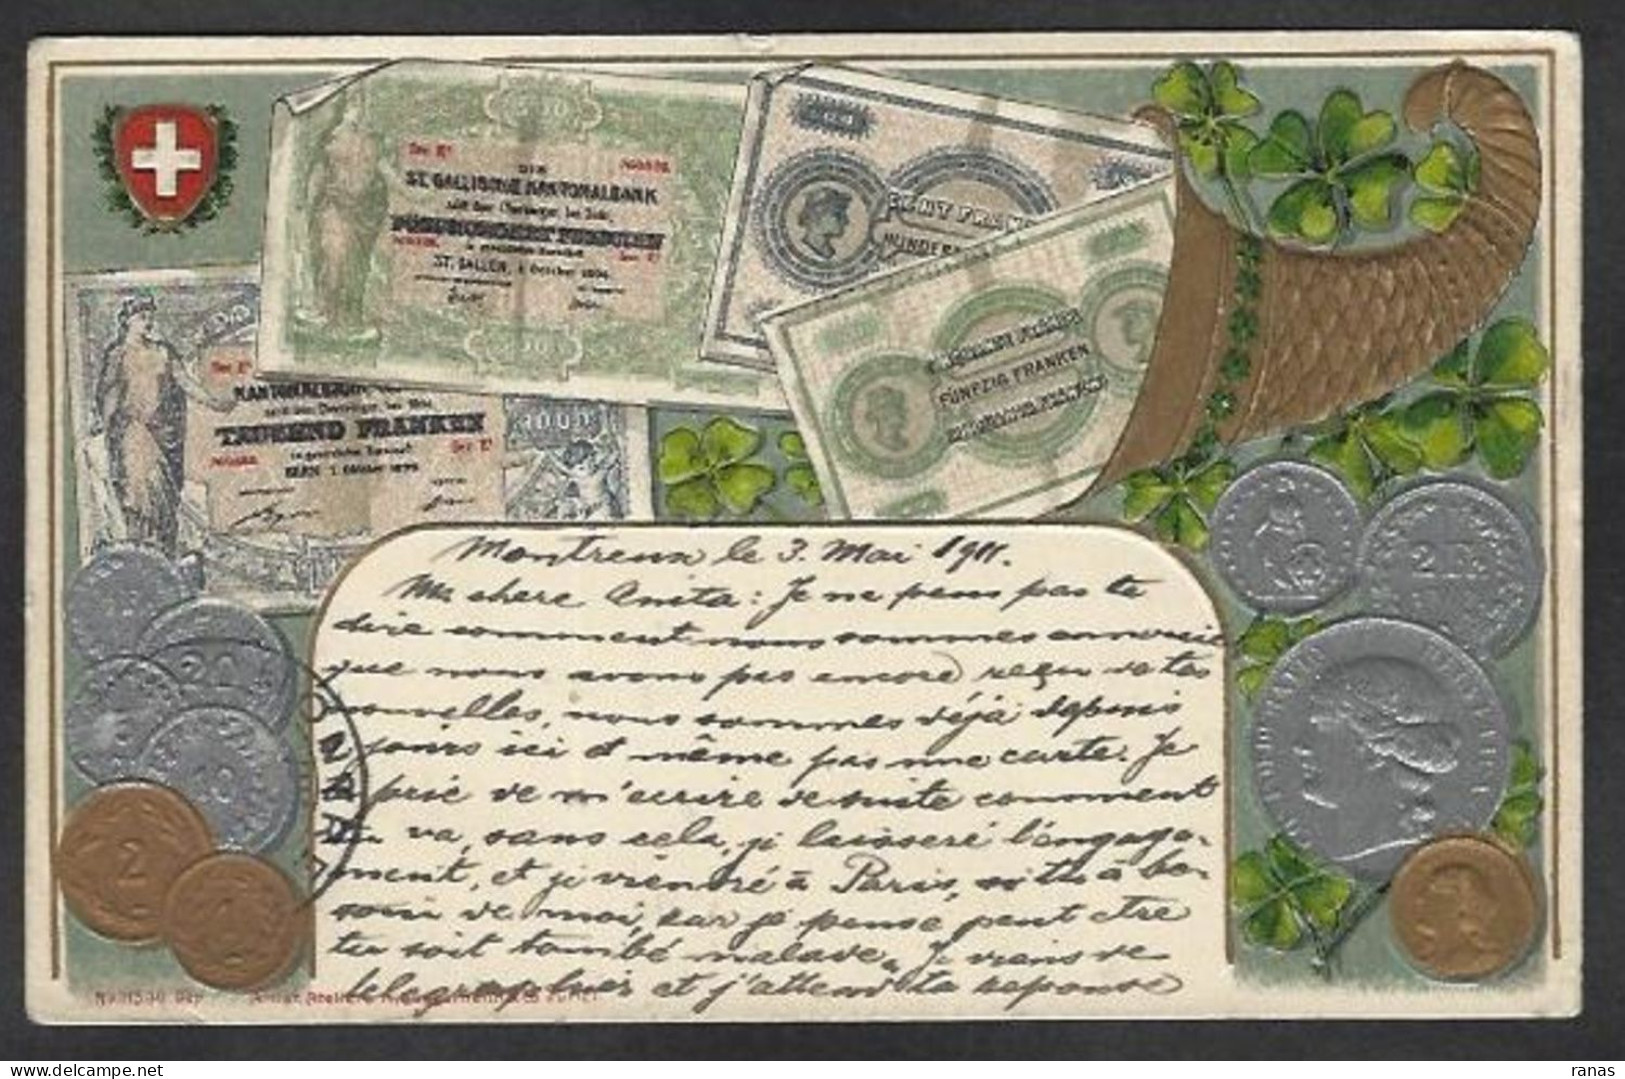 DIE
ST. GALLISCHE KANTONALBANK
FÜNFHUNDERT FRANKEN
ST. GALLEN, 1 October 1904
CENT FRANCS
FÜNFZIG FRANKEN
KANTONALBANK
TAUSEND FRANKEN
1000
Montreux le 3. Mai 1911.
Ma chere Anita: Je ne peus pas te
dire comment nous sommes ennouié
que nous avons pas encore reçu de tes
nouvelles, nous sommes déjà depuis
jours ici et même pas une carte. Je
te prie de m'ecrire de suite comment
tu va, sans cela, je laisseré l'engage-
ment, et je viendré à Paris, si tu à be-
soin de moi, car je pense peut etre
tu soit tombé malade. Je viens de
telegraphier et j'attend ta reponse
2 Fr.
20
10
2
1
ranas